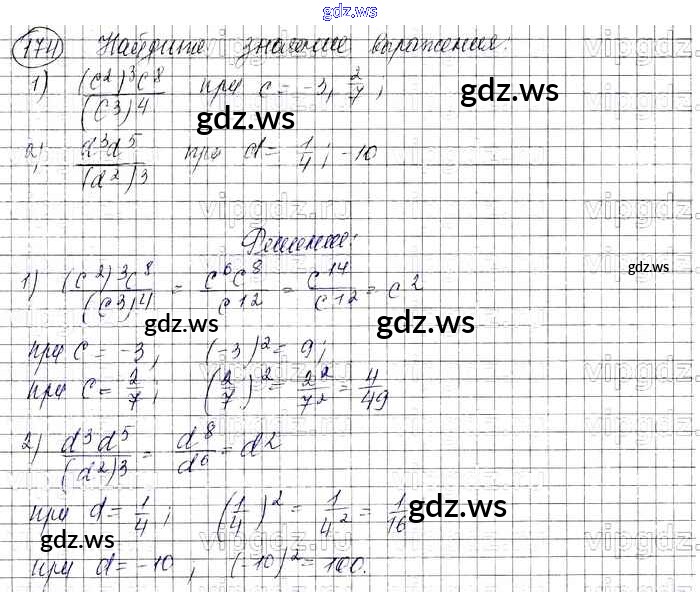 gdz.ws
174 Найдите значение выражения:
1) (c²)³c⁸/(c³)⁴ при c = -3, 2/7;
gdz.ws gdz.ws
2) d³d⁵/(d²)³ при d = 1/4; -10
gdz.ws
Решение:
1) (c²)³c⁸/(c³)⁴ = c⁶c⁸/c¹² = c¹⁴/c¹² = c²
gdz.ws
gdz.ws gdz.ws
при c = -3, (-3)² = 9;
при c = 2/7; (2/7)² = 2²/7² = 4/49
2) d³d⁵/(d²)³ = d⁸/d⁶ = d²
при d = 1/4; (1/4)² = 1/4² = 1/16
gdz.ws
gdz.ws
при d = -10, (-10)² = 100.